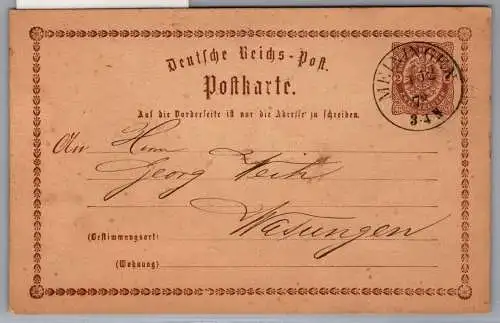 Deutsche Reichs-Post.
Postkarte.
MEININGEN
3-4 N
Auf die Vorderseite ist nur die Adresse zu schreiben.
An Herrn
Georg Veith
Wasungen
(Bestimmungsort)
(Wohnung)